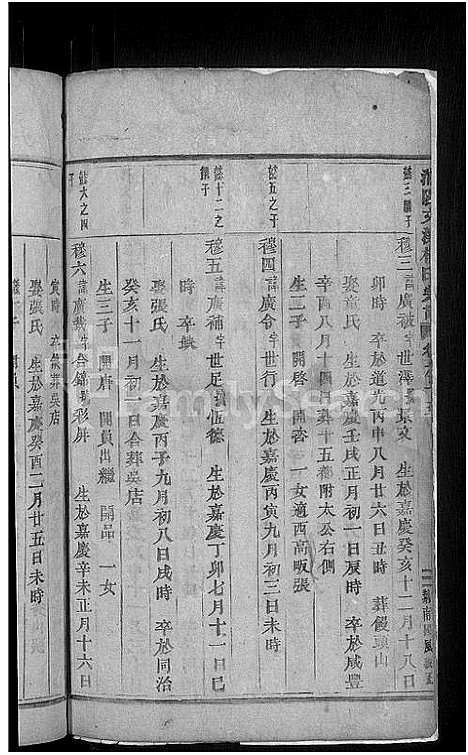 穆三 諱廣被 字世澤 號振文 生於嘉慶癸亥十二月十八日
卯時 卒於道光丙申八月廿六日丑時 葬饅頭山
娶童氏 生於嘉慶壬戌正月初一日辰時 卒於咸豐
辛酉八月十四日葬十五都附太公右側
生二子 開啓 開咨 一女適西高畈張
鉉五之子
穆四 諱廣令 字世行 生於嘉慶丙寅九月初三日未時
鉉十二之
穆五 諱廣補 字世足 號伍德 生於嘉慶丁卯七月十一日巳
時 卒缺
娶張氏 生於嘉慶丙子九月初八日戌時 卒於同治
癸亥十一月初一日合葬吳店
生三子 開唐 開員出繼 開品 一女
鉉六之四
子
穆六 諱廣 字合錦 號彩屏 生於嘉慶辛未正月十六日
寅時 葬吳店
娶張氏 生於嘉慶癸酉二月廿五日未時
FamilySearch